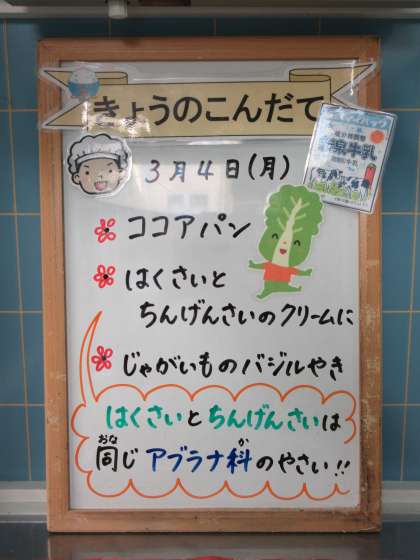 きょうのこんだて
3月4日(月)
牛乳
ココアパン
はくさいと
ちんげんさいのクリームに
じゃがいものバジルやき
はくさいとちんげんさいは
同じアブラナ科のやさい!!
おな
か